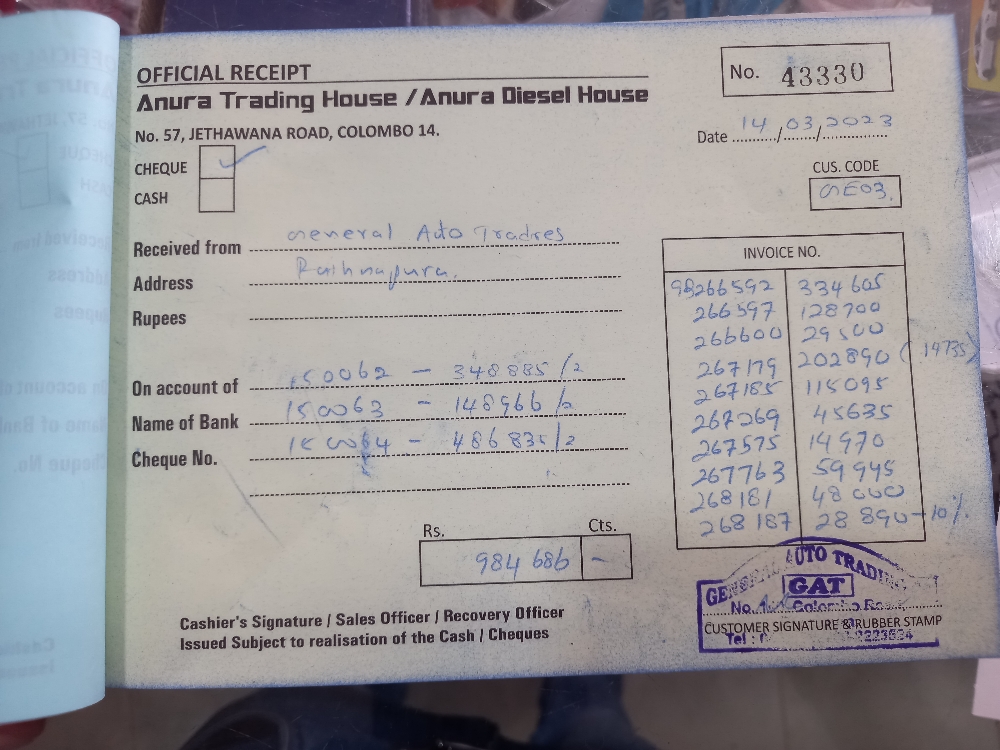 OFFICIAL RECEIPT
No. 43330
Anura Trading House / Anura Diesel House
No. 57, JETHAWANA ROAD, COLOMBO 14.
Date 14/03/2023
CHEQUE ✓
CASH
CUS. CODE
GE03.
Received from General Auto Tradres
Address Rathnapura.
Rupees
On account of 150062 - 348885/=
Name of Bank 150063 - 148966/=
Cheque No. 150064 - 486835/=
INVOICE NO.
98266592 334605
266597 128700
266600 29500
267179 202890 (14735)
267185 115095
267269 45635
267575 14970
267763 59945
268181 48000
268187 28890-10%
Rs. Cts.
984 686 -
Cashier's Signature / Sales Officer / Recovery Officer
Issued Subject to realisation of the Cash / Cheques
AUTO TRADING
GAT
No. Colombo
CUSTOMER SIGNATURE & RUBBER STAMP
Tel :